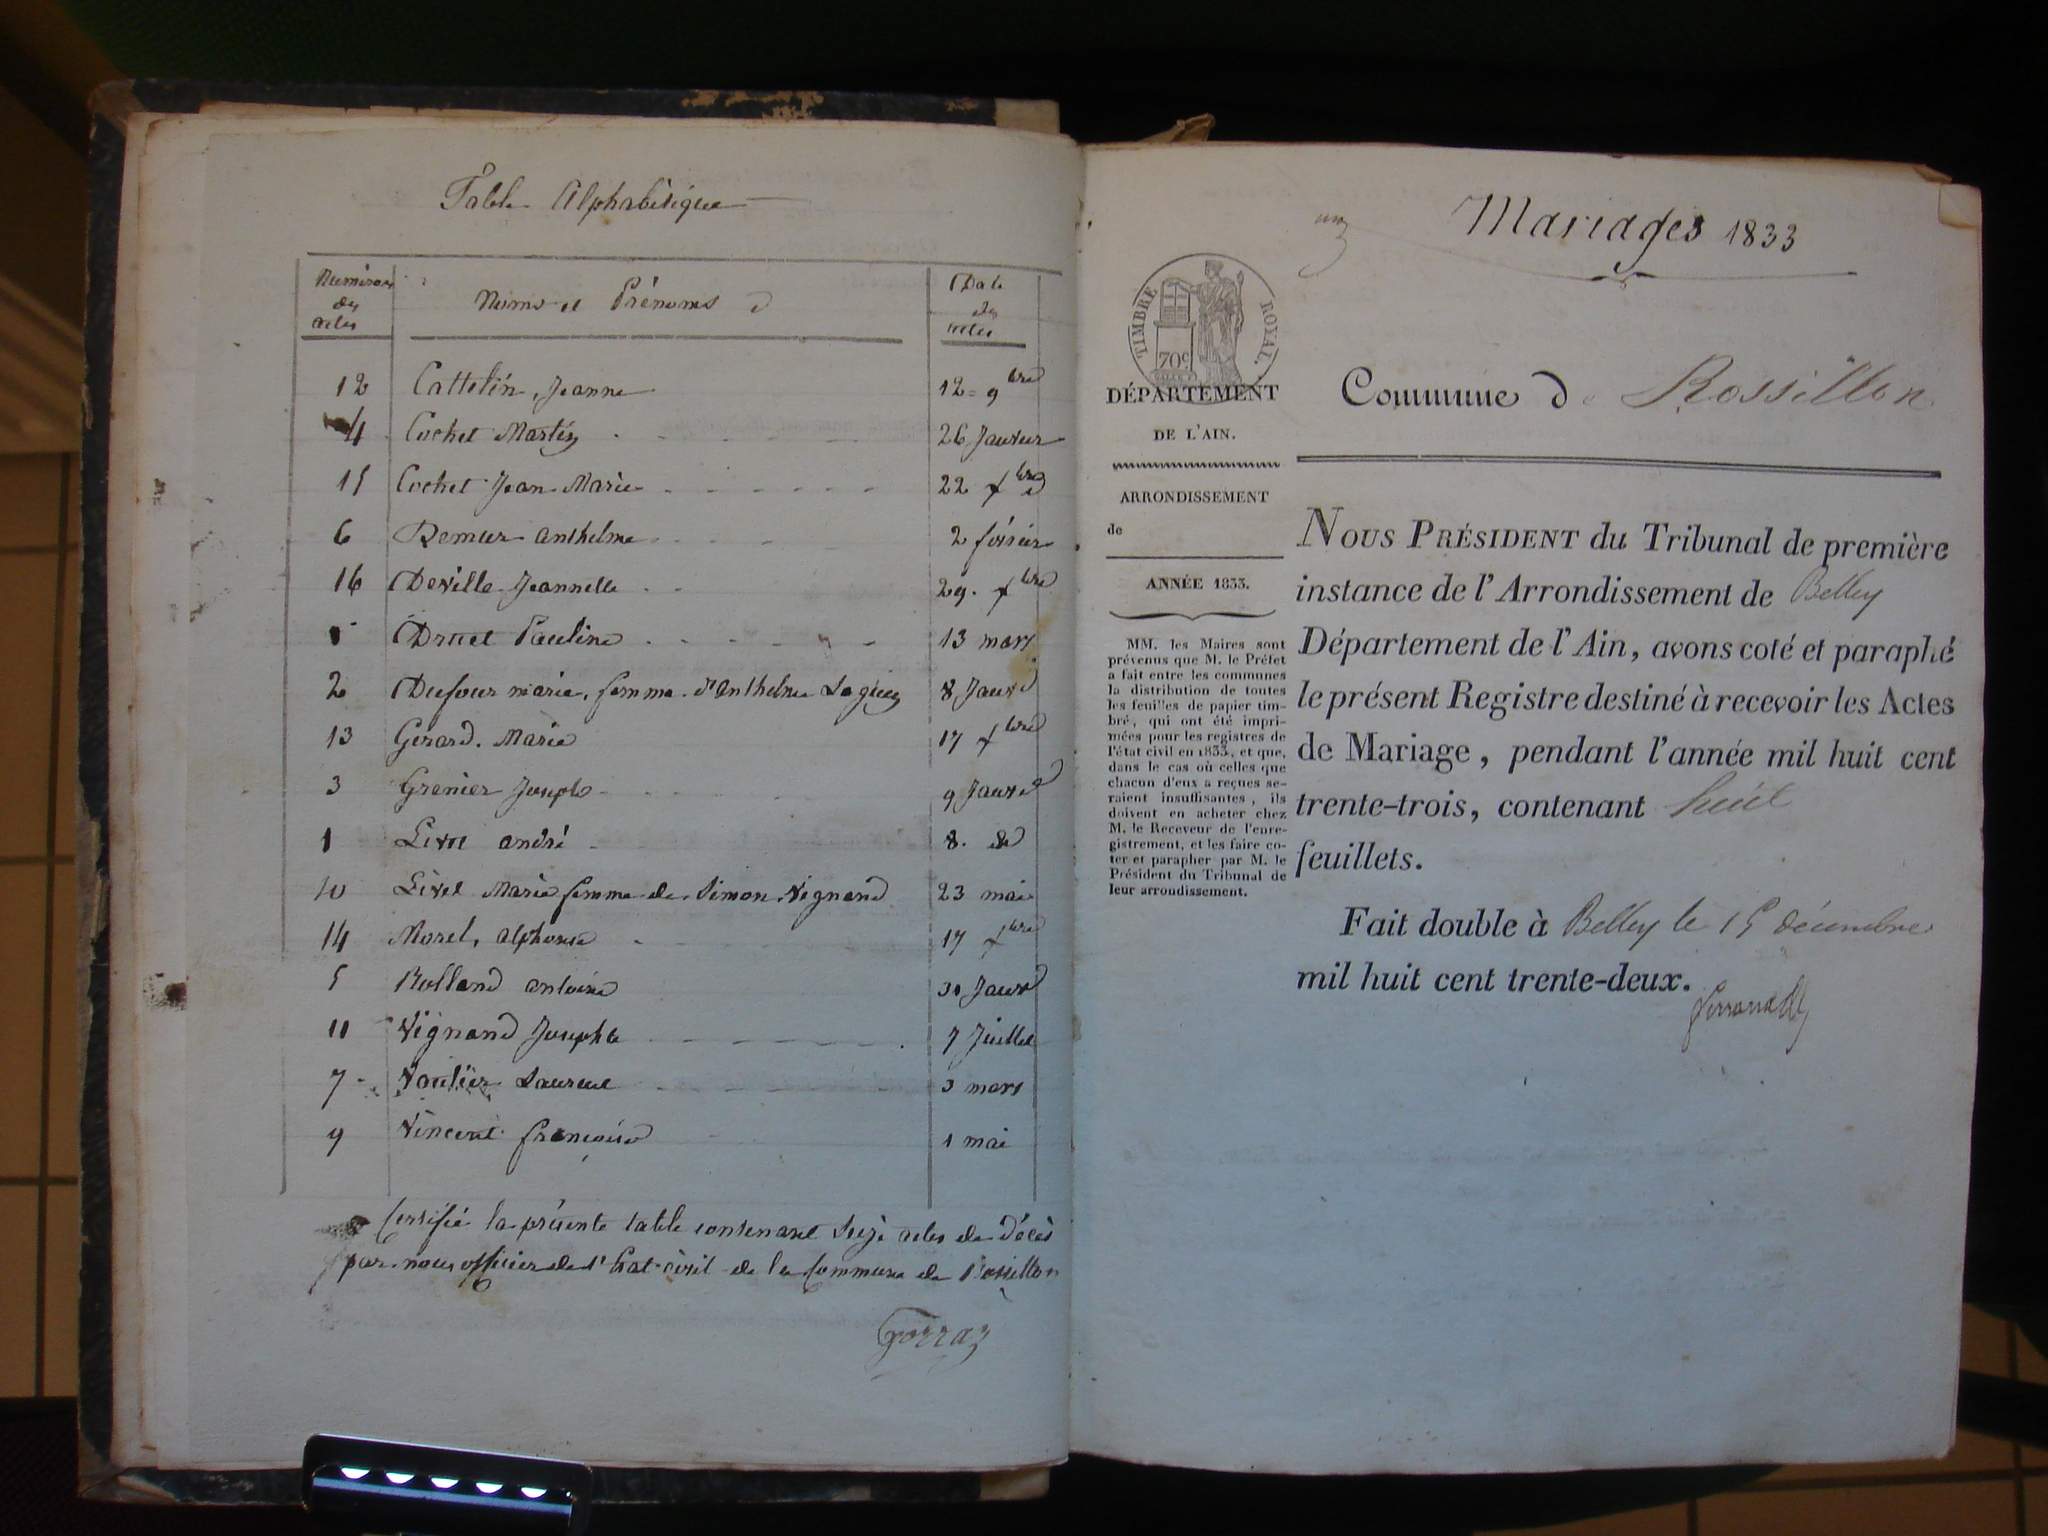 Table Alphabétique
Numéros des actes
Noms et Prénoms
Date des actes
12 Cattelin, Jeanne 12 = 9bre
4 Cochet Martin 26 Janvier
15 Cochet Jean Marie 22 xbre
6 Demur anthelme 2 février
16 Deville Jeannette 29. xbre
Druet Pauline 13 mars
2 Dufour marie, femme d'anthelme 8 Janvr
13 Gerard. Marie 17 xbre
3 Grenier Joseph 9 Janvr
1 andré 8. d
10 Livet Marie femme de Simon Vignand 23 mai
14 Morel, alphonse 17 xbre
5 Rolland antoine 30 Janvr
11 Vignand Josephte 7 Juillet
7 Laurent 3 mars
9 Vincent françoise 1 mai
Certifié la présente table contenant Seize actes de Décès
par nous officier de l'Etat-civil de la Commune de Rossillon
Gorraz
un
Mariages 1833
TIMBRE ROYAL.
70c
DÉPARTEMENT
DE L'AIN.
Commune de Rossillon
ARRONDISSEMENT
de
ANNÉE 1833.
MM. les Maires sont
prévenus que M. le Préfet
a fait entre les communes
la distribution de toutes
les feuilles de papier tim-
bré, qui ont été impri-
mées pour les registres de
l'état civil en 1833, et que,
dans le cas où celles que
chacun d'eux a reçues se-
raient insuffisantes, ils
doivent en acheter chez
M. le Receveur de l'enre-
gistrement, et les faire co-
ter et parapher par M. le
Président du Tribunal de
leur arrondissement.
NOUS PRÉSIDENT du Tribunal de première
instance de l'Arrondissement de Belley
Département de l'Ain, avons coté et paraphé
le présent Registre destiné à recevoir les Actes
de Mariage, pendant l'année mil huit cent
trente-trois, contenant huit
feuillets.
Fait double à Belley le 15 décembre
mil huit cent trente-deux.